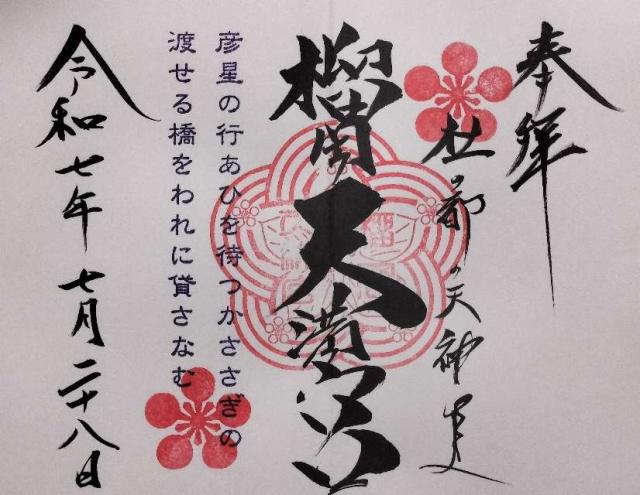 奉拝
杜の都の天神さま
榴岡天満宮
彦星の行あひを待つかささぎの
渡せる橋をわれに貸さなむ
令和七年七月二十八日